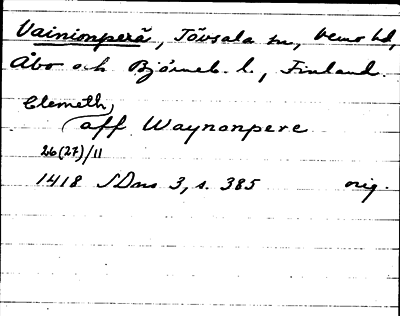 Vainionperä, Tövsala sn, Vemo hd,
Åbo och Björneb. l., Finland.
Clemeth,
aff Waynonpere
26(27)/11
1418 SDns 3, s. 385 orig.